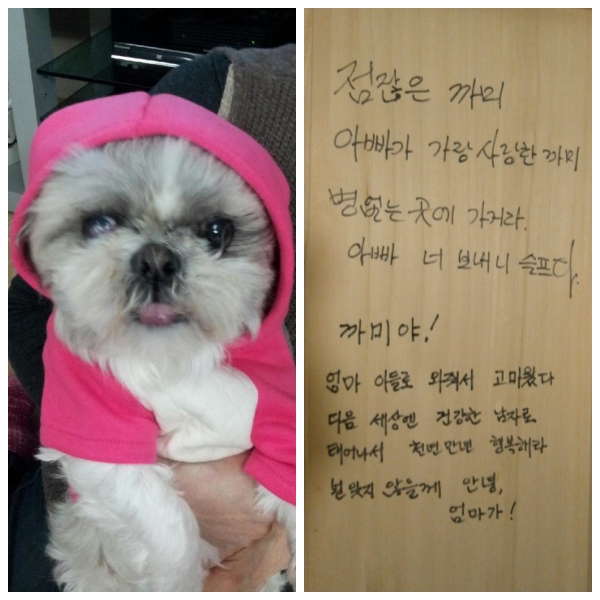 점잖은 까미
아빠가 가랑 사랑한 까미
병없는 곳에 가거라.
아빠 너 보내니 슬프다.
까미야!
엄마 아들로 와줘서 고마웠다
다음 세상엔 건강한 남자로
태어나서 천년만년 행복해라
잊지 않을께 안녕,
엄마가!